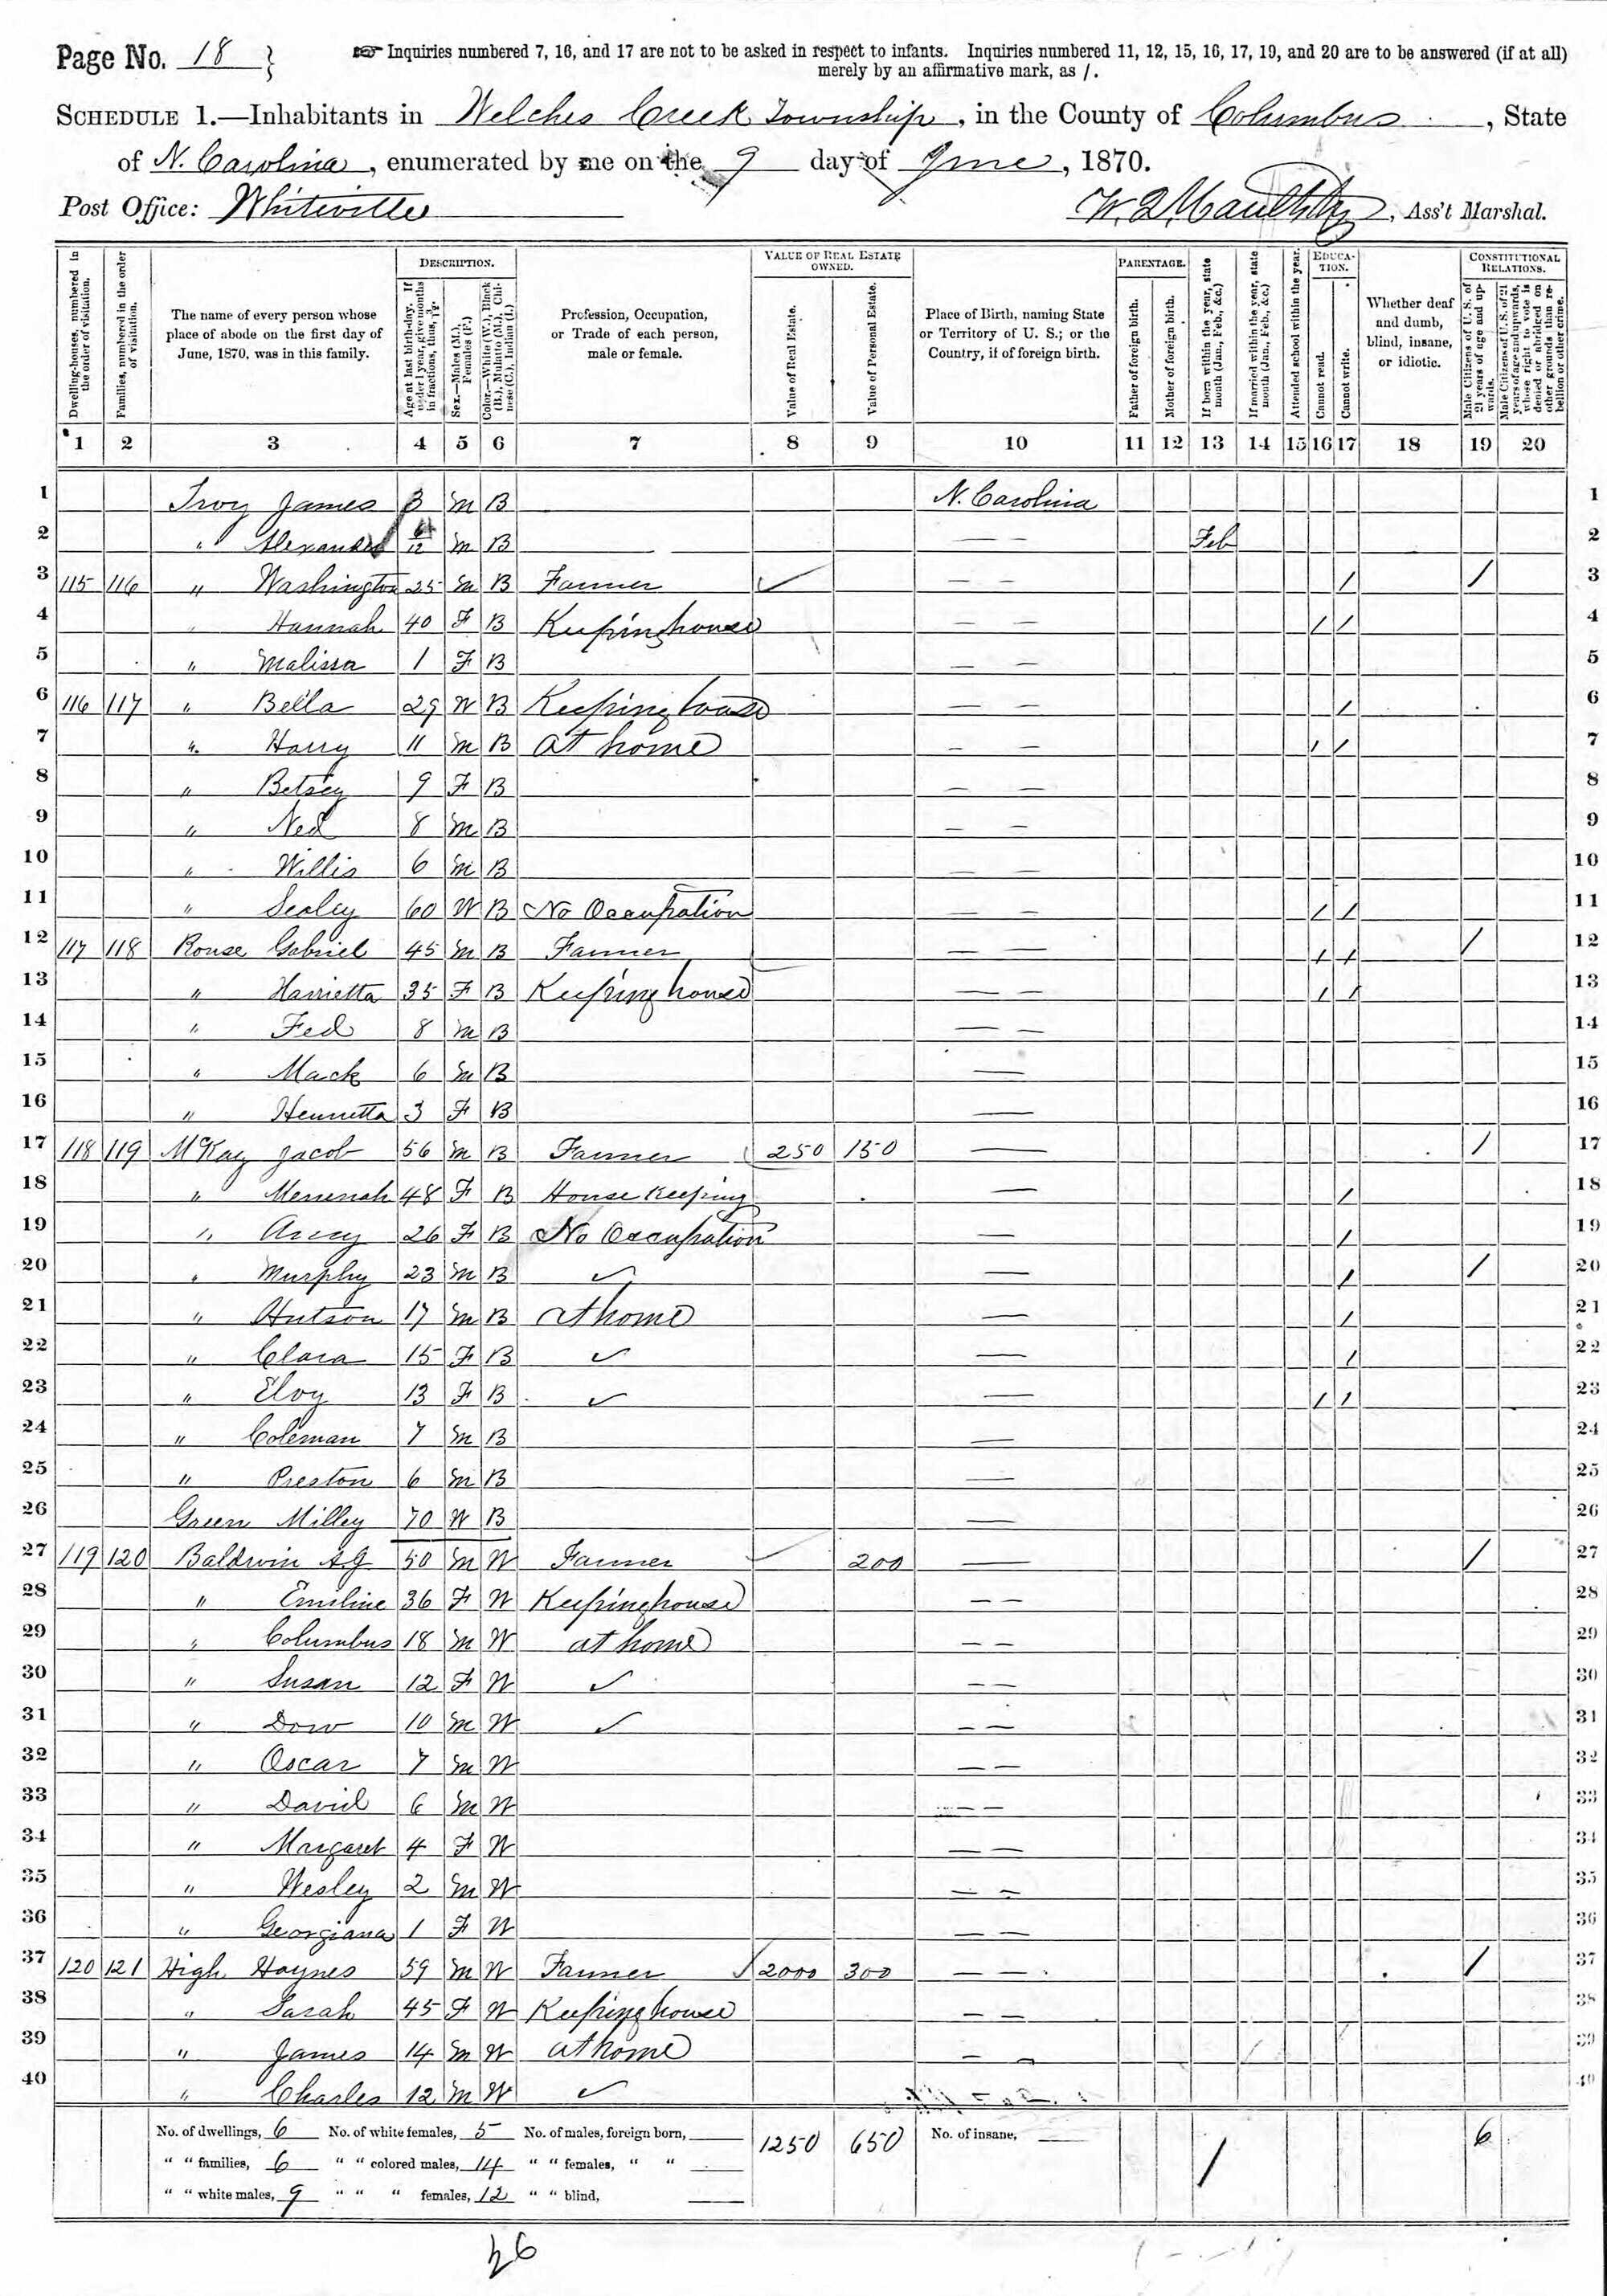 Page No. 18 } ☞ Inquiries numbered 7, 16, and 17 are not to be asked in respect to infants. Inquiries numbered 11, 12, 15, 16, 17, 19, and 20 are to be answered (if at all)
merely by an affirmative mark, as /.
SCHEDULE 1.—Inhabitants in Welches Creek Township, in the County of Columbus, State
of N. Carolina, enumerated by me on the 9 day of June, 1870.
Post Office: Whiteville W Maultsby, Ass't Marshal.
Dwelling-houses, numbered in the order of visitation.
Families, numbered in the order of visitation.
The name of every person whose place of abode on the first day of June, 1870, was in this family.
DESCRIPTION.
Age at last birth-day. If under 1 year, give months in fractions, thus, 3/12.
Sex.—Males (M.), Females (F.)
Color.—White (W.), Black (B.), Mulatto (M.), Chinese (C.), Indian (I.)
Profession, Occupation, or Trade of each person, male or female.
VALUE OF REAL ESTATE OWNED.
Value of Real Estate.
Value of Personal Estate.
Place of Birth, naming State or Territory of U. S.; or the Country, if of foreign birth.
PARENTAGE.
Father of foreign birth.
Mother of foreign birth.
If born within the year, state month (Jan., Feb., &c.)
If married within the year, state month (Jan., Feb., &c.)
Attended school within the year.
EDUCATION.
Cannot read.
Cannot write.
Whether deaf and dumb, blind, insane, or idiotic.
CONSTITUTIONAL RELATIONS.
Male Citizens of U. S. of 21 years of age and upwards.
Male Citizens of U. S. of 21 years of age and upwards, whose right to vote is denied or abridged on other grounds than rebellion or other crime.
1 2 3 4 5 6 7 8 9 10 11 12 13 14 15 16 17 18 19 20
1 Troy James 3 M B N. Carolina 1
2 " Alexander /12 M B — — Feb 2
3 115 116 " Washington 25 M B Farmer ✓ — — / / 3
4 " Hannah 40 F B Keeping house — — / / 4
5 " Malissa 1 F B — — 5
6 116 117 " Bella 29 W B Keeping house — — / 6
7 " Harry 11 M B At home — — / / 7
8 " Betsey 9 F B — — 8
9 " Ned 8 M B — — 9
10 " Willis 6 M B — — 10
11 " Sealey 60 W B No Occupation — — / / 11
12 117 118 Rouse Gabriel 45 M B Farmer — — / / / 12
13 " Harrietta 35 F B Keeping house — — / / 13
14 " Fed 8 M B — — 14
15 " Mack 6 M B — 15
16 " Henrietta 3 F B — 16
17 118 119 McKay Jacob 56 M B Farmer 250 150 — / 17
18 " 48 F B House Keeping — / 18
19 " 26 F B No Occupation — / 19
20 " Murphy 23 M B ✓ — / / 20
21 " Hutson 17 M B at home — / 21
22 " Clara 15 F B ✓ — / 22
23 " Elvy 13 F B ✓ — / / 23
24 " Coleman 7 M B — 24
25 " Preston 6 M B — 25
26 Green Milley 70 W B — 26
27 119 120 Baldwin A.J 50 M W Farmer ✓ 200 — / 27
28 " Emiline 36 F W Keeping house — — 28
29 " Columbus 18 M W at home — — 29
30 " Susan 12 F W ✓ — — 30
31 " Dow 10 M W ✓ — — 31
32 " Oscar 7 M W — — 32
33 " David 6 M W — — 33
34 " Margaret 4 F W — — 34
35 " Wesley 2 M W — — 35
36 " Georgiana 1 F W — — 36
37 120 121 High Haynes 59 M W Farmer ✓ 2000 300 — — / 37
38 " Sarah 45 F W Keeping house — — 38
39 " James 14 M W at home — — 39
40 " Charles 12 M W ✓ 40
No. of dwellings, 6 No. of white females, 5 No. of males, foreign born, 1250 650 No. of insane, / 6
" " families, 6 " " colored males, 14 " " females, " "
" " white males, 9 " " " females, 12 " " blind,
26